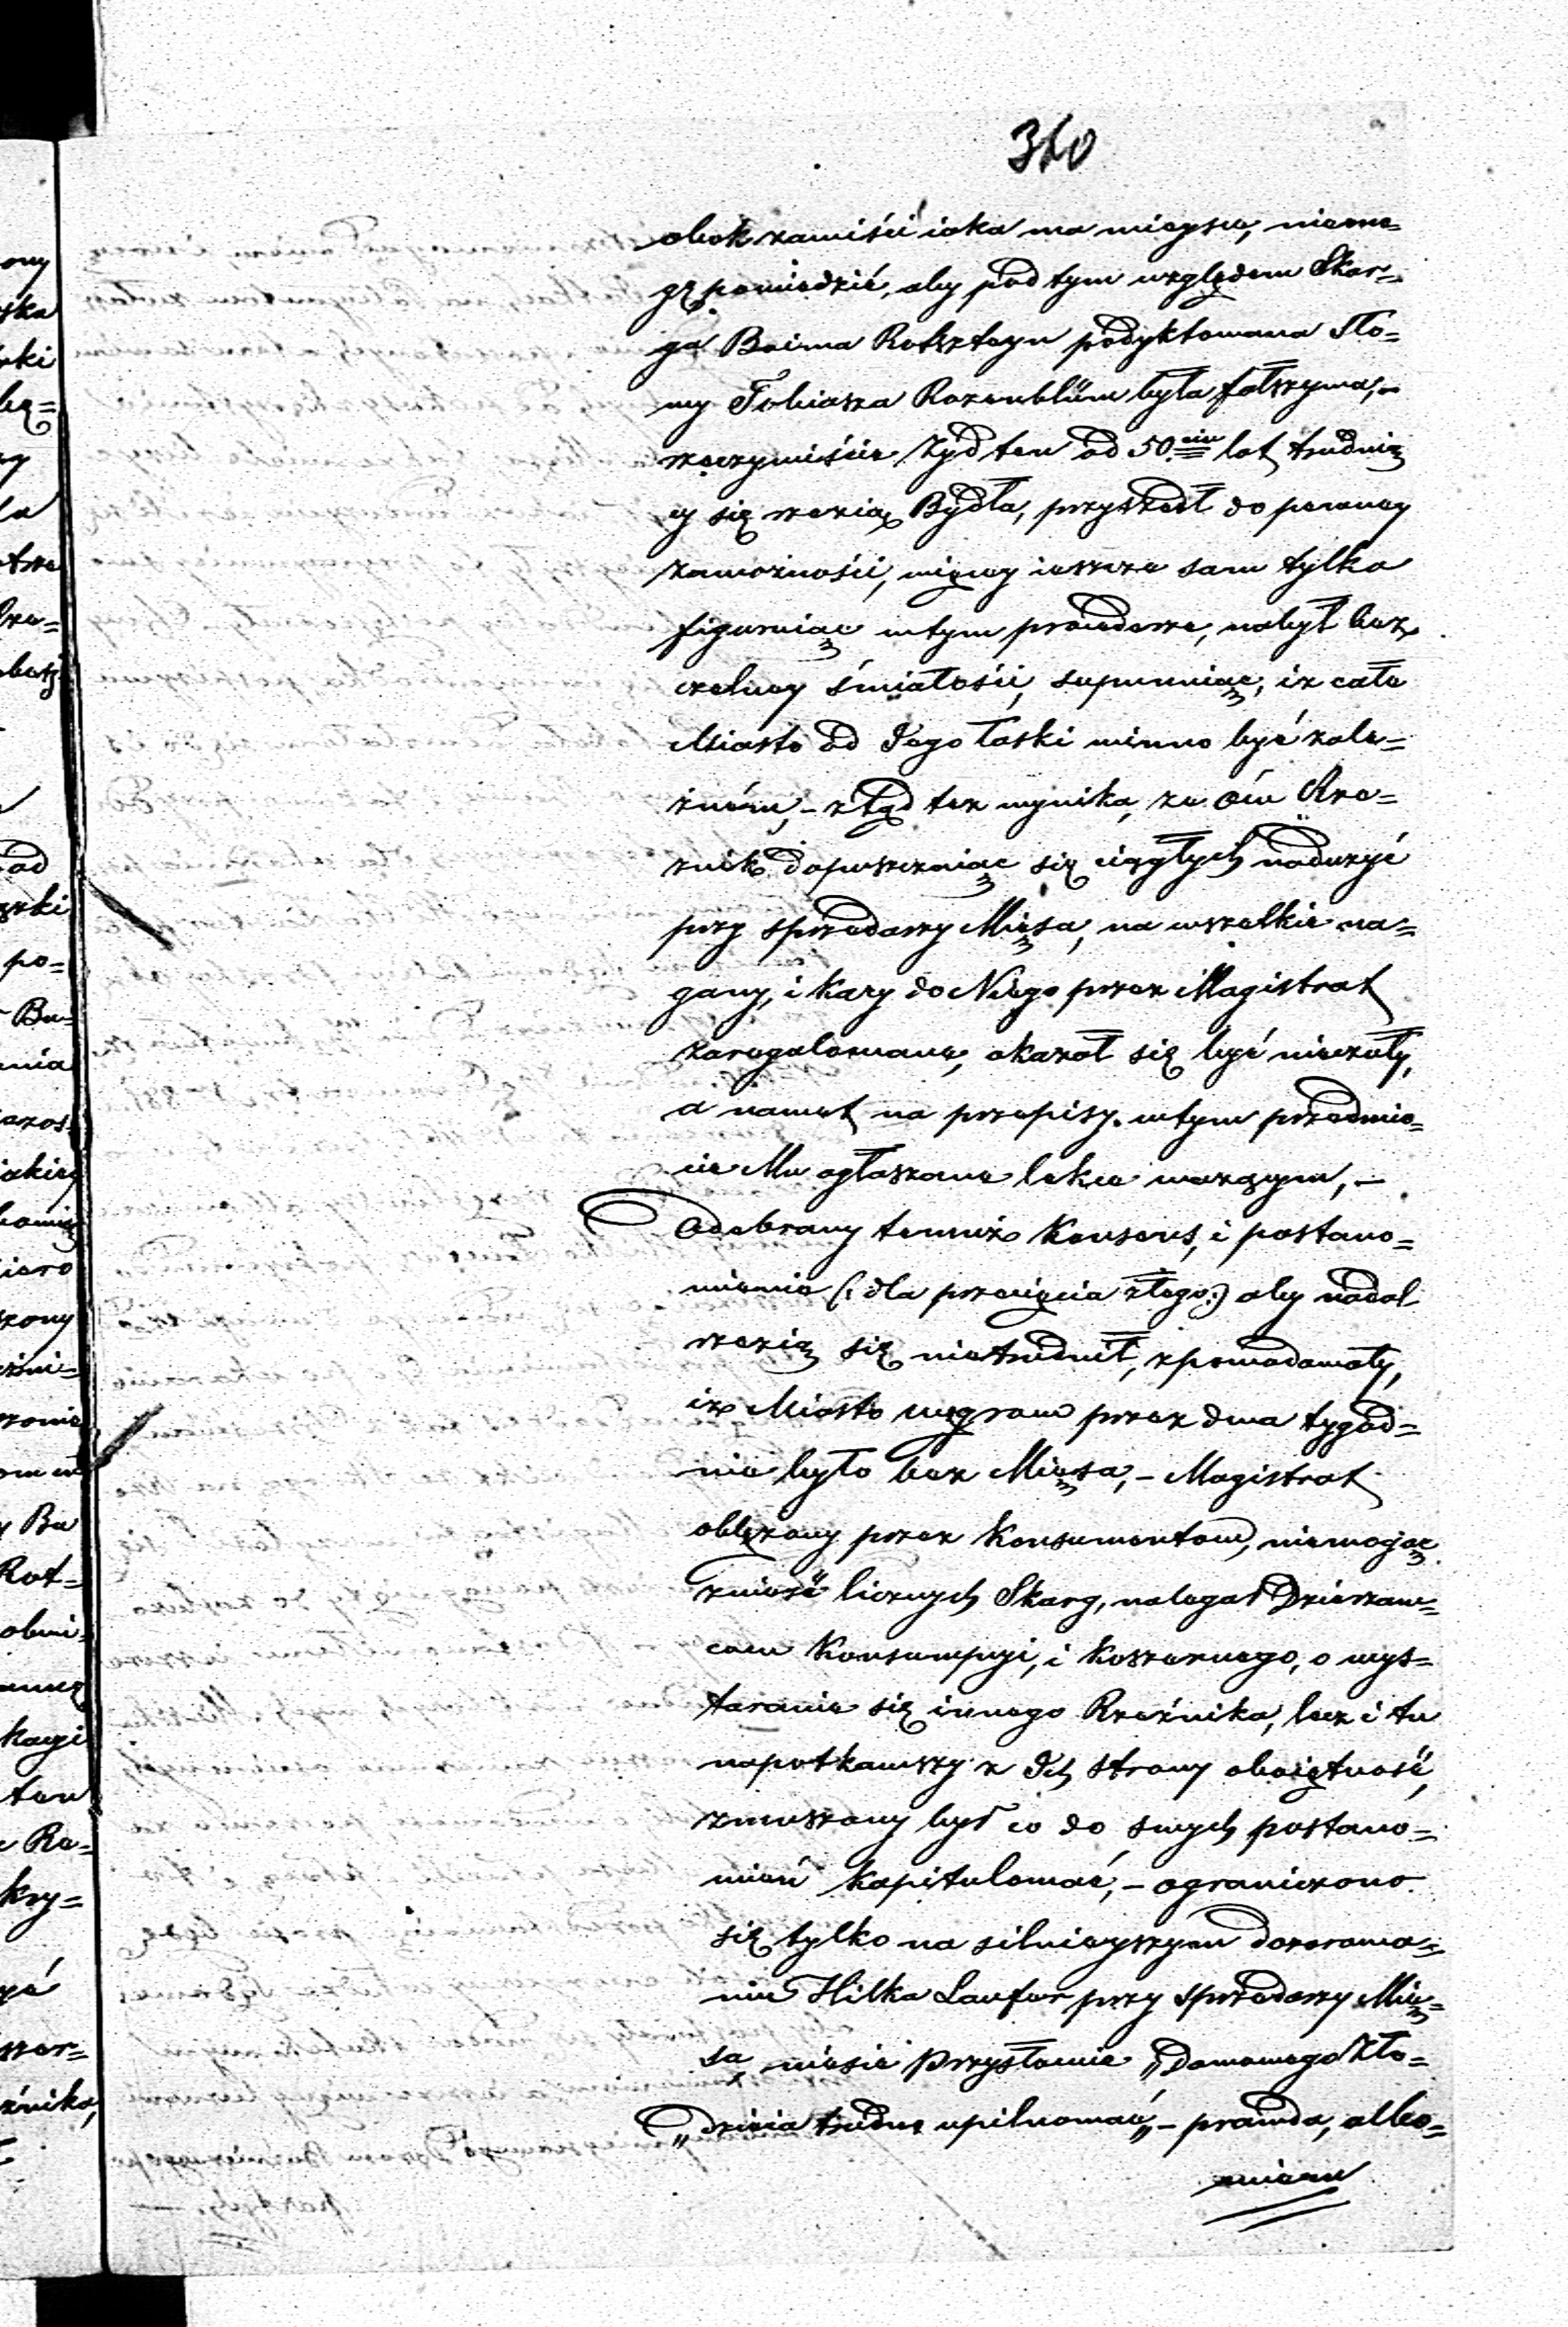 310
obok zawiści iaka ma mieysce, niemo=
gę powiedzić, aby pod tym względem Skar=
ga Boima Rotszteyn podyktowana Sło=
wy Tobiasza Rozenblüm była fałszywa,–
rzeczywiście Żyd ten od 50ciu lat trudnią
cy się rzezią Bydła, przyszedł do pewney
zamożności, więcey ieszcze sam tylko
figuruiąc w tym procederze, nabył bez
czelney śmiałości, supunuiąc, iż całe
Miasto od Jego łaski winno być zale=
żném,– ztąd tez wynika, ze ów Rze=
znik dopuszczaiąc się ciągłych nadużyć
przy sprzedarzy Mięsa, na wszelkie na=
gany, i kary do Niego przez Magistrat
zaregulowane, okazał się być nieczuły,
a nawet na przepisy w tym przedmio=
cie Mu ogłaszane lekce warzącym,–
Odebrany temuż Konsens, i postano=
wienie (: dla przecięcia złego :) aby nadal
rzezią się nietrudnił, spowodowały,
iż Miasto wegrow przez dwa tygod=
nie było bez Mięsa,– Magistrat
oblężony przez Konsumentow, niemogąc
znieść licznych Skarg, nalegał Dzierzaw=
com Konsumpcyi, i Koszernego, o wys=
taranie się innego Rzeźnika, lecz i tu
napotkawszy z Ich strony oboiętność,
zmuszony był co do swych postano=
wień kapitulować,– ograniczono
się tylko na silnieyszym dozorowa=
niu Hilka Laufer przy sprzedarzy Mię=
sa niesie Przysłowie „Domowego Zło=
„dzieia trudno upilnować„– prawda, albo=
wiem